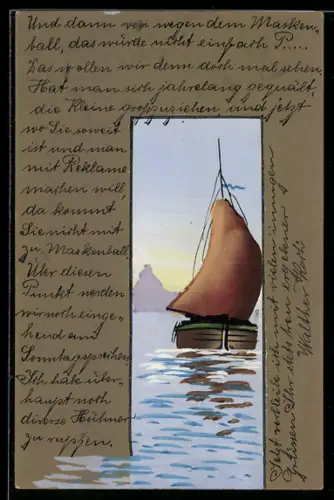 Und dann von wegen dem Masken-
ball, das würde nicht einfach P.....
Das wollen wir denn doch mal sehen.
Hat man sich jahrelang gequält,
die Kleine großzuziehen, und jetzt
wo Sie soweit
ist und man
mit Reklame
machen will,
da kommt
Sie nicht mit
zu Maskenball.
Über diesen
Punkt werden
wir noch einge-
hend am
Sonntag sprechen.
Ich hab über-
haupt noch
diverse Hühner
zu rupfen.
Jetzt verbleibe ich mit vielen innigen
Grüssen Ihr stets treu ergebener
Walther